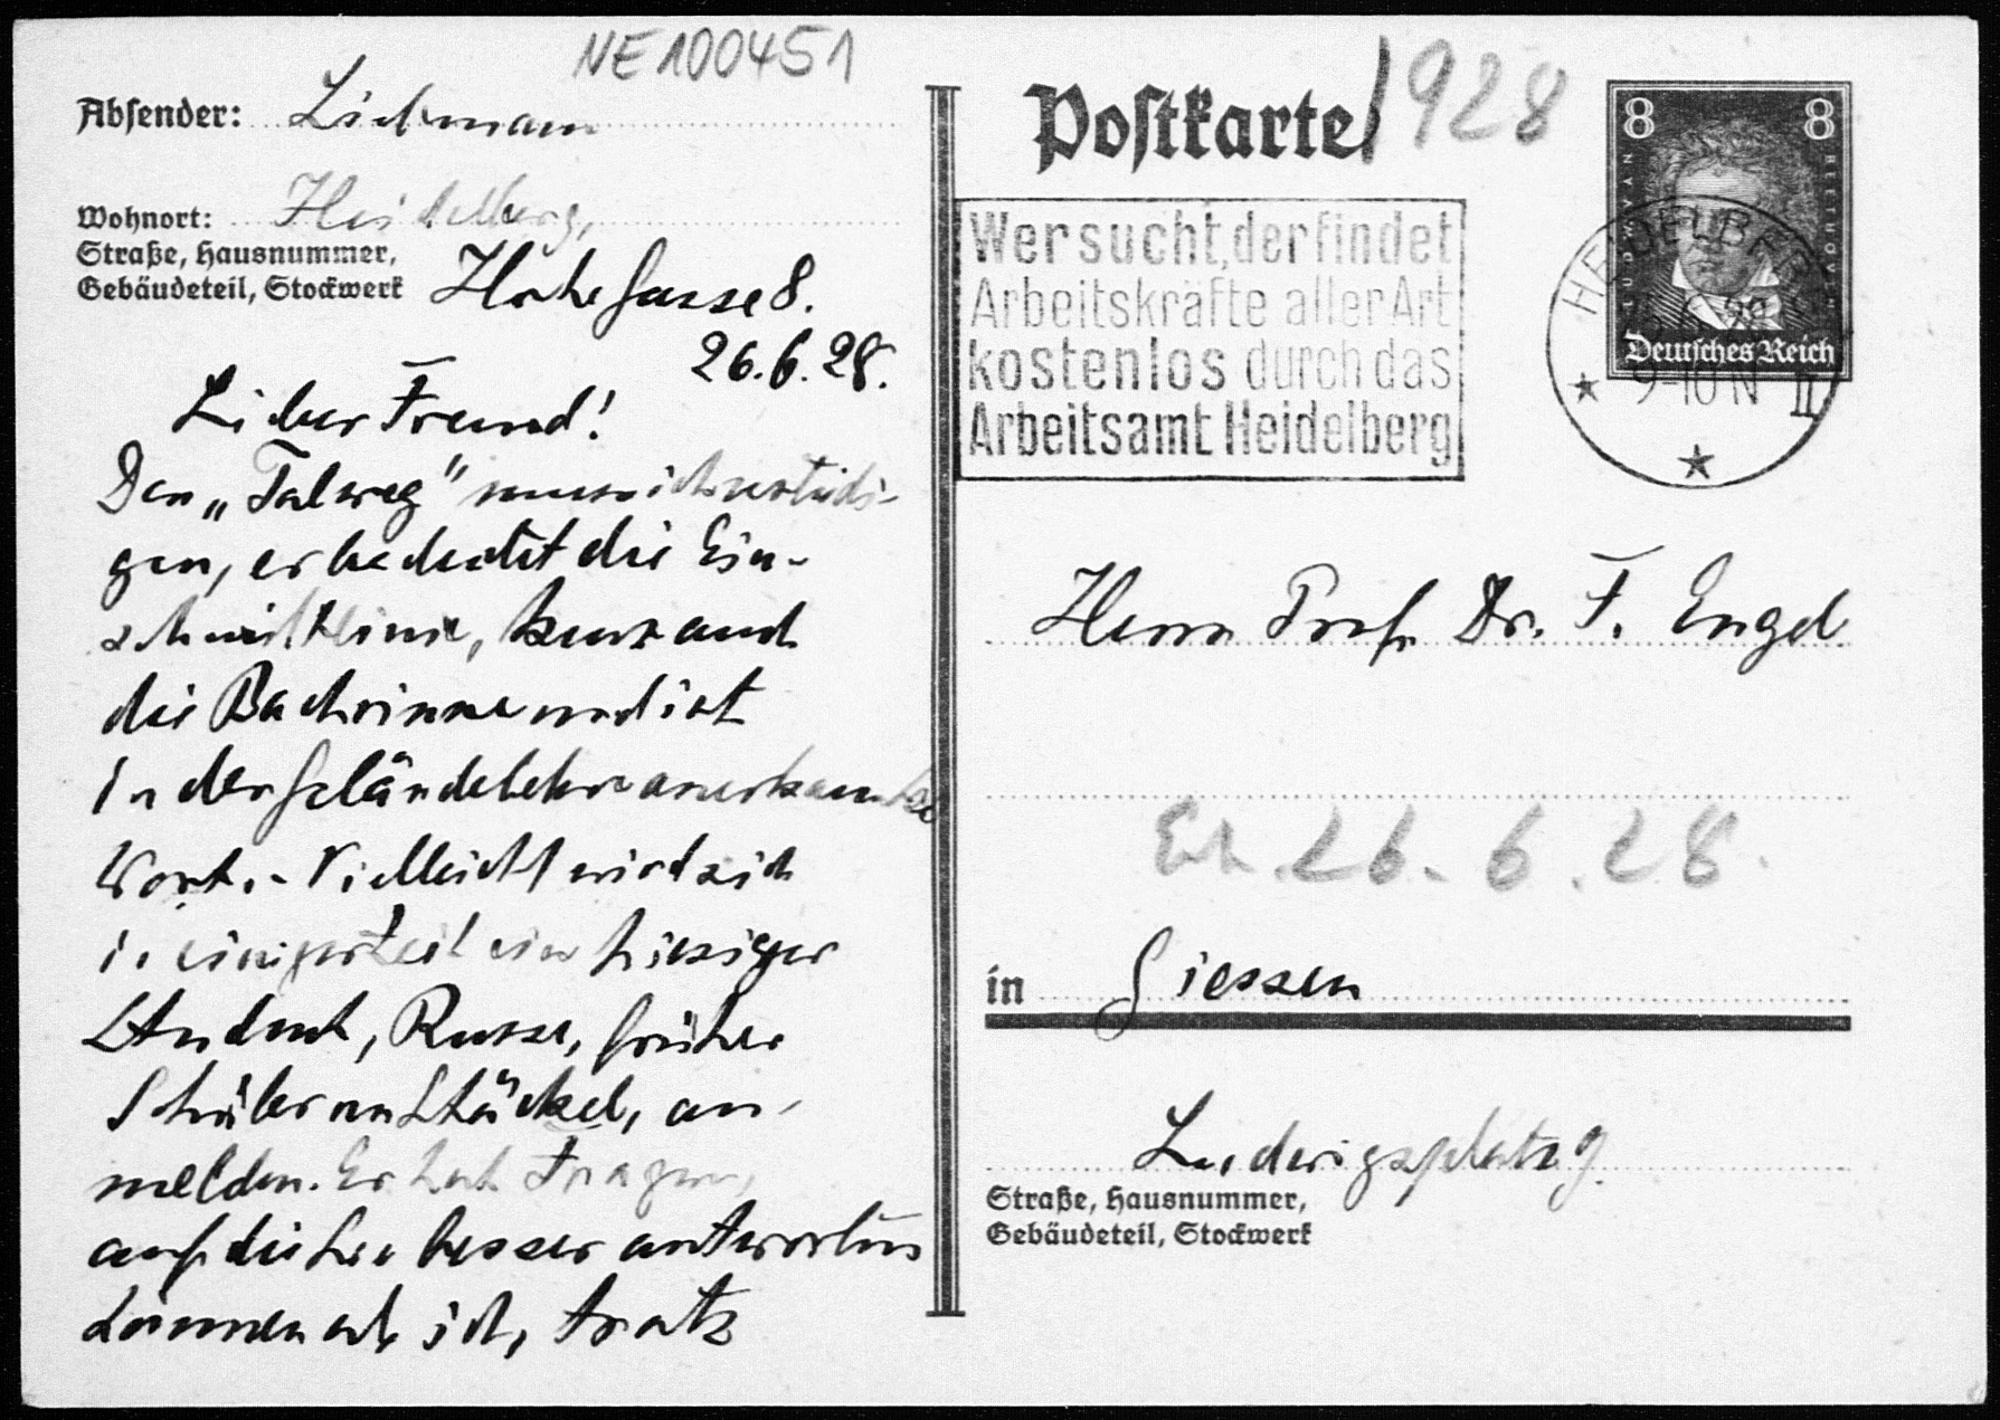 NE100451
Absender: Liebmann
Wohnort: Heidelberg,
Straße, Hausnummer,
Gebäudeteil, Stockwerk
Hohe Gasse 8.
26.6.28.
Lieber Freund!
Den „Talweg" muss ich verteidi-
gen, er bedeutet die Ein-
schnittlinie, kurz auch
die Bachrinne und ist
in der Geländelehre anerkanntes
Wort. - Vielleicht wird sich
in einiger Zeit ein hiesiger
Student, Russe, früher
Schüler von Stäckel, an-
melden. Er hat Fragen,
auf die Sie besser antworten
können als ich, trotz
Postkarte 1928
Wer sucht, der findet
Arbeitskräfte aller Art
kostenlos durch das
Arbeitsamt Heidelberg
8 8
LUDWIG VAN BEETHOVEN
Deutsches Reich
HEIDELBERG
6.28
9-10 N
II
Herrn Prof. Dr. F. Engel
26.6.28.
in Giessen
Ludwigsplatz 9.
Straße, Hausnummer,
Gebäudeteil, Stockwerk